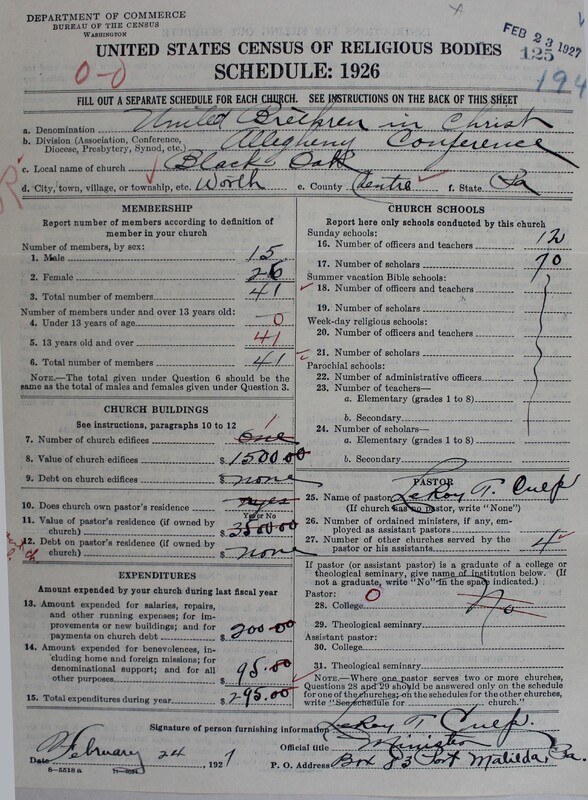 DEPARTMENT OF COMMERCE
BUREAU OF THE CENSUS
WASHINGTON
FEB 23 1927
125
194
UNITED STATES CENSUS OF RELIGIOUS BODIES
SCHEDULE: 1926
0-0
FILL OUT A SEPARATE SCHEDULE FOR EACH CHURCH. SEE INSTRUCTIONS ON THE BACK OF THIS SHEET
a. Denomination United Brethren in Christ
b. Division (Association, Conference, Diocese, Presbytery, Synod, etc.) Allegheny Conference
c. Local name of church Black Oak
d. City, town, village, or township, etc. Worth e. County Centre f. State Pa
MEMBERSHIP
Report number of members according to definition of
member in your church
Number of members, by sex:
1. Male 15
2. Female 26
3. Total number of members 41
Number of members under and over 13 years old:
4. Under 13 years of age 0
5. 13 years old and over 41
6. Total number of members 41
NOTE.—The total given under Question 6 should be the
same as the total of males and females given under Question 3.
CHURCH BUILDINGS
See instructions, paragraphs 10 to 12
7. Number of church edifices one 1
8. Value of church edifices $ 1500.00
9. Debt on church edifices $ none
10. Does church own pastor's residence? yes
Yes or No
11. Value of pastor's residence (if owned by
church) $ 3500.00
12. Debt on pastor's residence (if owned by
church) $ none
EXPENDITURES
Amount expended by your church during last fiscal year
13. Amount expended for salaries, repairs,
and other running expenses; for im-
provements or new buildings; and for
payments on church debt $ 200.00
14. Amount expended for benevolences, in-
cluding home and foreign missions; for
denominational support; and for all
other purposes $ 95.00
15. Total expenditures during year $ 295.00
CHURCH SCHOOLS
Report here only schools conducted by this church
Sunday schools:
16. Number of officers and teachers 12
17. Number of scholars 70
Summer vacation Bible schools:
18. Number of officers and teachers
19. Number of scholars
Week-day religious schools:
20. Number of officers and teachers
21. Number of scholars
Parochial schools:
22. Number of administrative officers
23. Number of teachers—
a. Elementary (grades 1 to 8)
b. Secondary
24. Number of scholars—
a. Elementary (grades 1 to 8)
b. Secondary
PASTOR
25. Name of pastor LeRoy T. Culp
(If church has no pastor, write "None")
26. Number of ordained ministers, if any, em-
ployed as assistant pastors
27. Number of other churches served by the
pastor or his assistants 4
If pastor (or assistant pastor) is a graduate of a college or
theological seminary, give name of institution below. (If
not a graduate, write "No" in the space indicated.)
Pastor: 0
28. College No
29. Theological seminary
Assistant pastor:
30. College
31. Theological seminary
NOTE.—Where one pastor serves two or more churches,
Questions 28 and 29 should be answered only on the schedule
for one of the churches; on the schedules for the other churches,
write "See schedule for church."
Signature of person furnishing information LeRoy T. Culp.
Official title Minister
Date February 24, 1927 P. O. Address Box 83 Port Matilda, Pa.
8—5518 a